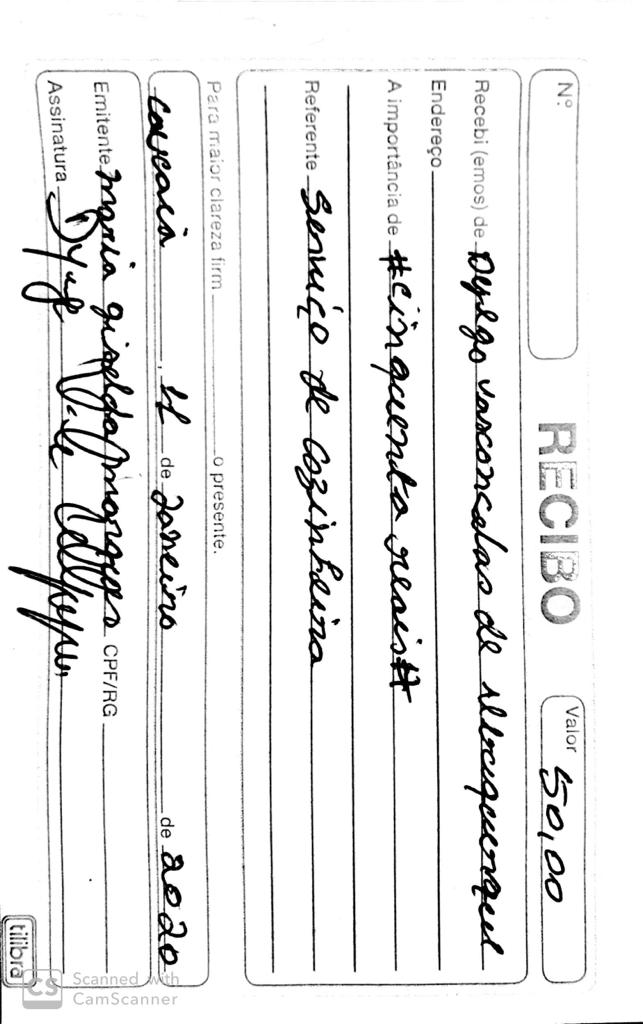 Nº RECIBO Valor 50,00
Recebi (emos) de Dyego vasconcelos de
Endereço
A importância de #cinquenta reais#
Referente Serviço de cozinheira
Para maior clareza firm o presente.
caucaia, 11 de Janeiro de 2020
Emitente maria giselda marques CPF/RG
Assinatura
tilibra
CS Scanned with
CamScanner